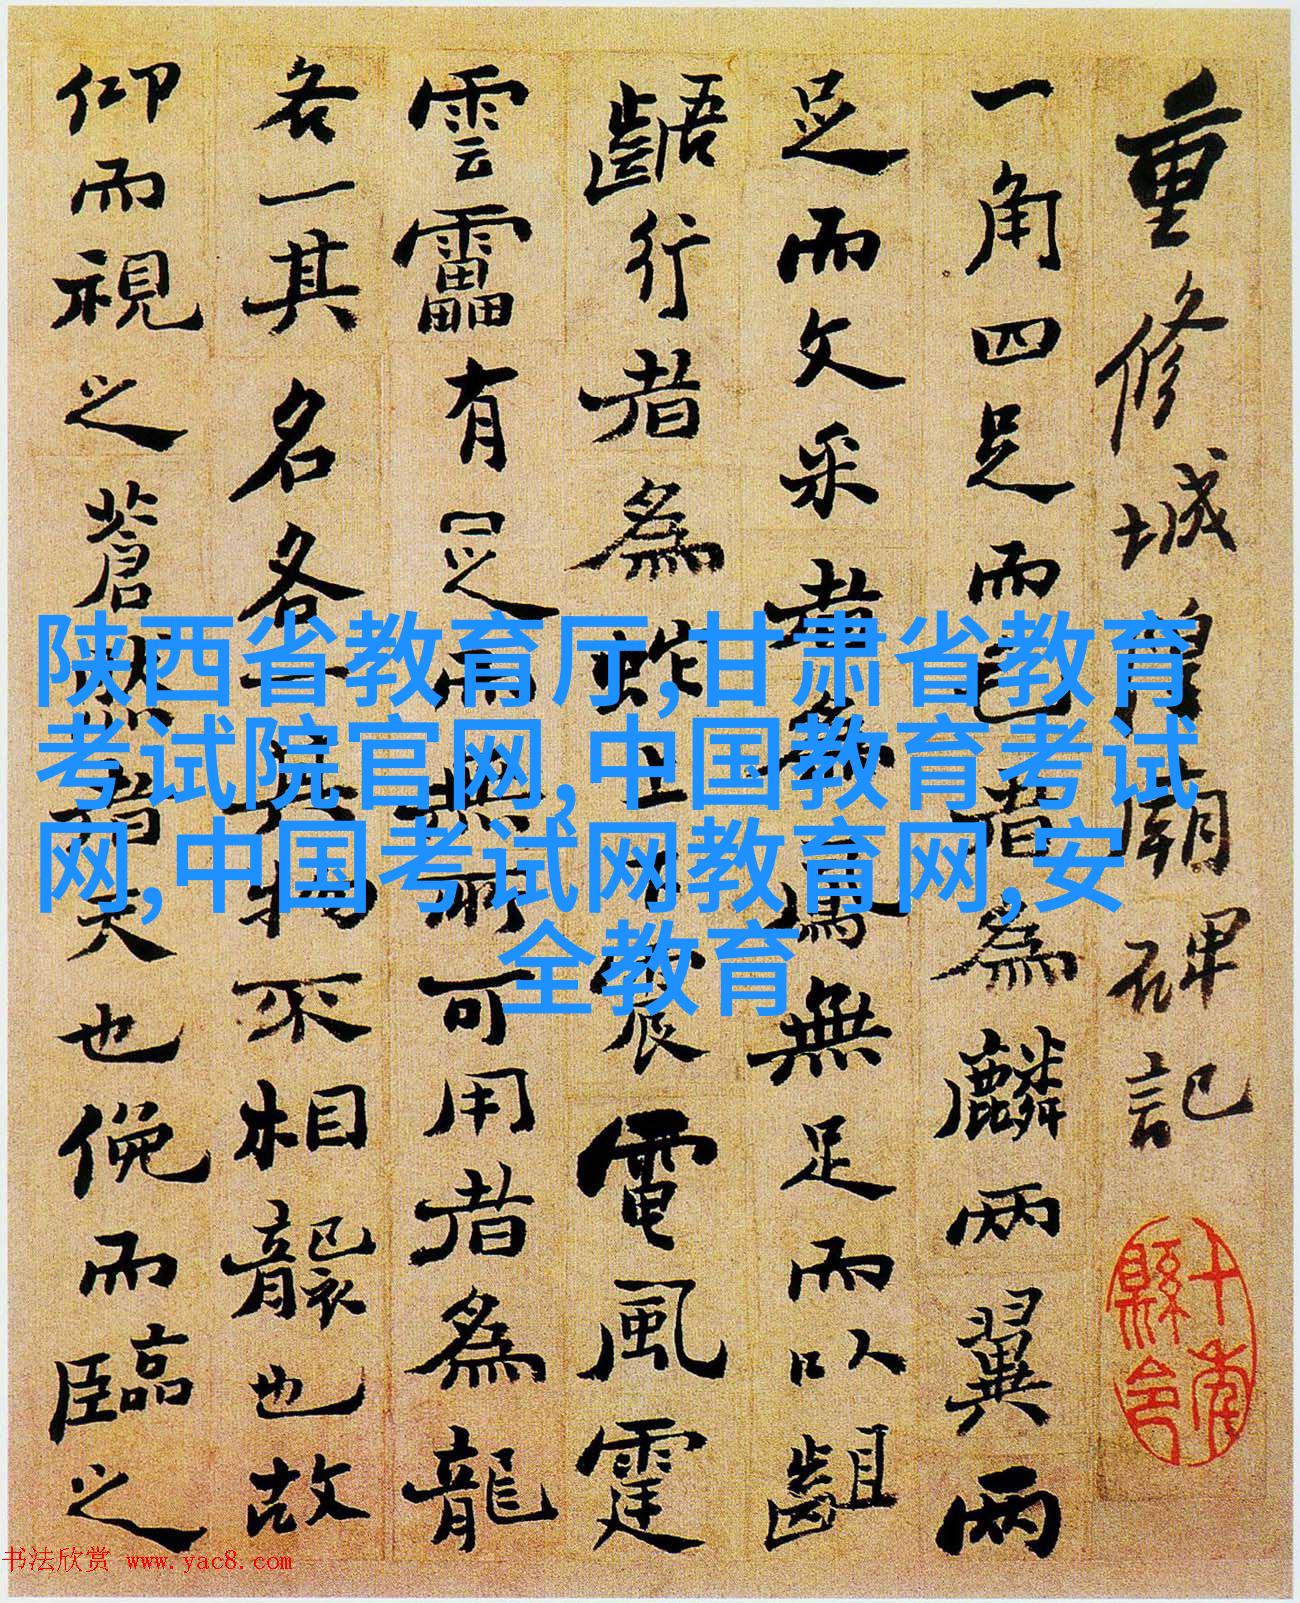 重修城隍廟碑記
一角四足而毛者為麟兩翼兩
足而文采者為鳳無足而以齟
齬行者為蛇上下震電風霆
雲靁有足而無所可用者為龍
各一其名各一其物不相襲也故
仰而視之蒼然者天也俛而臨之
陕西省教育厅,甘肃省教育
考试院官网,中国教育考试
网,中国考试网教育网,安
全教育
书法欣赏 www.yac8.com